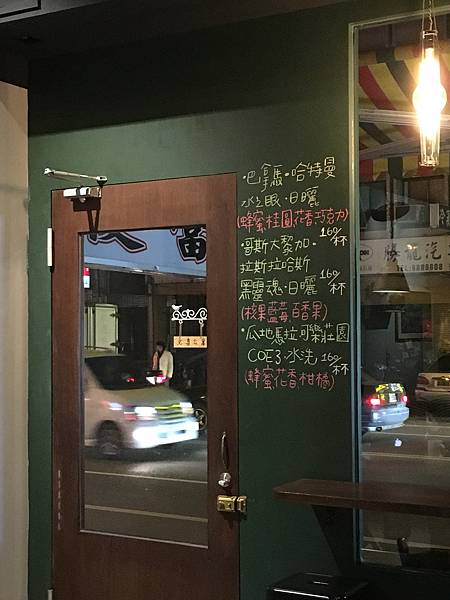 ·巴拿馬·哈特曼
水之眼·日曬
(蜂蜜桂圓花香巧克力)
160/杯
·哥斯大黎加·
拉斯拉哈斯
黑靈魂·日曬
160/杯
(核果藍莓百香果)
·瓜地馬拉可樂莊園
COE3·水洗
160/杯
(蜂蜜花香柑橘)
騰龍汽